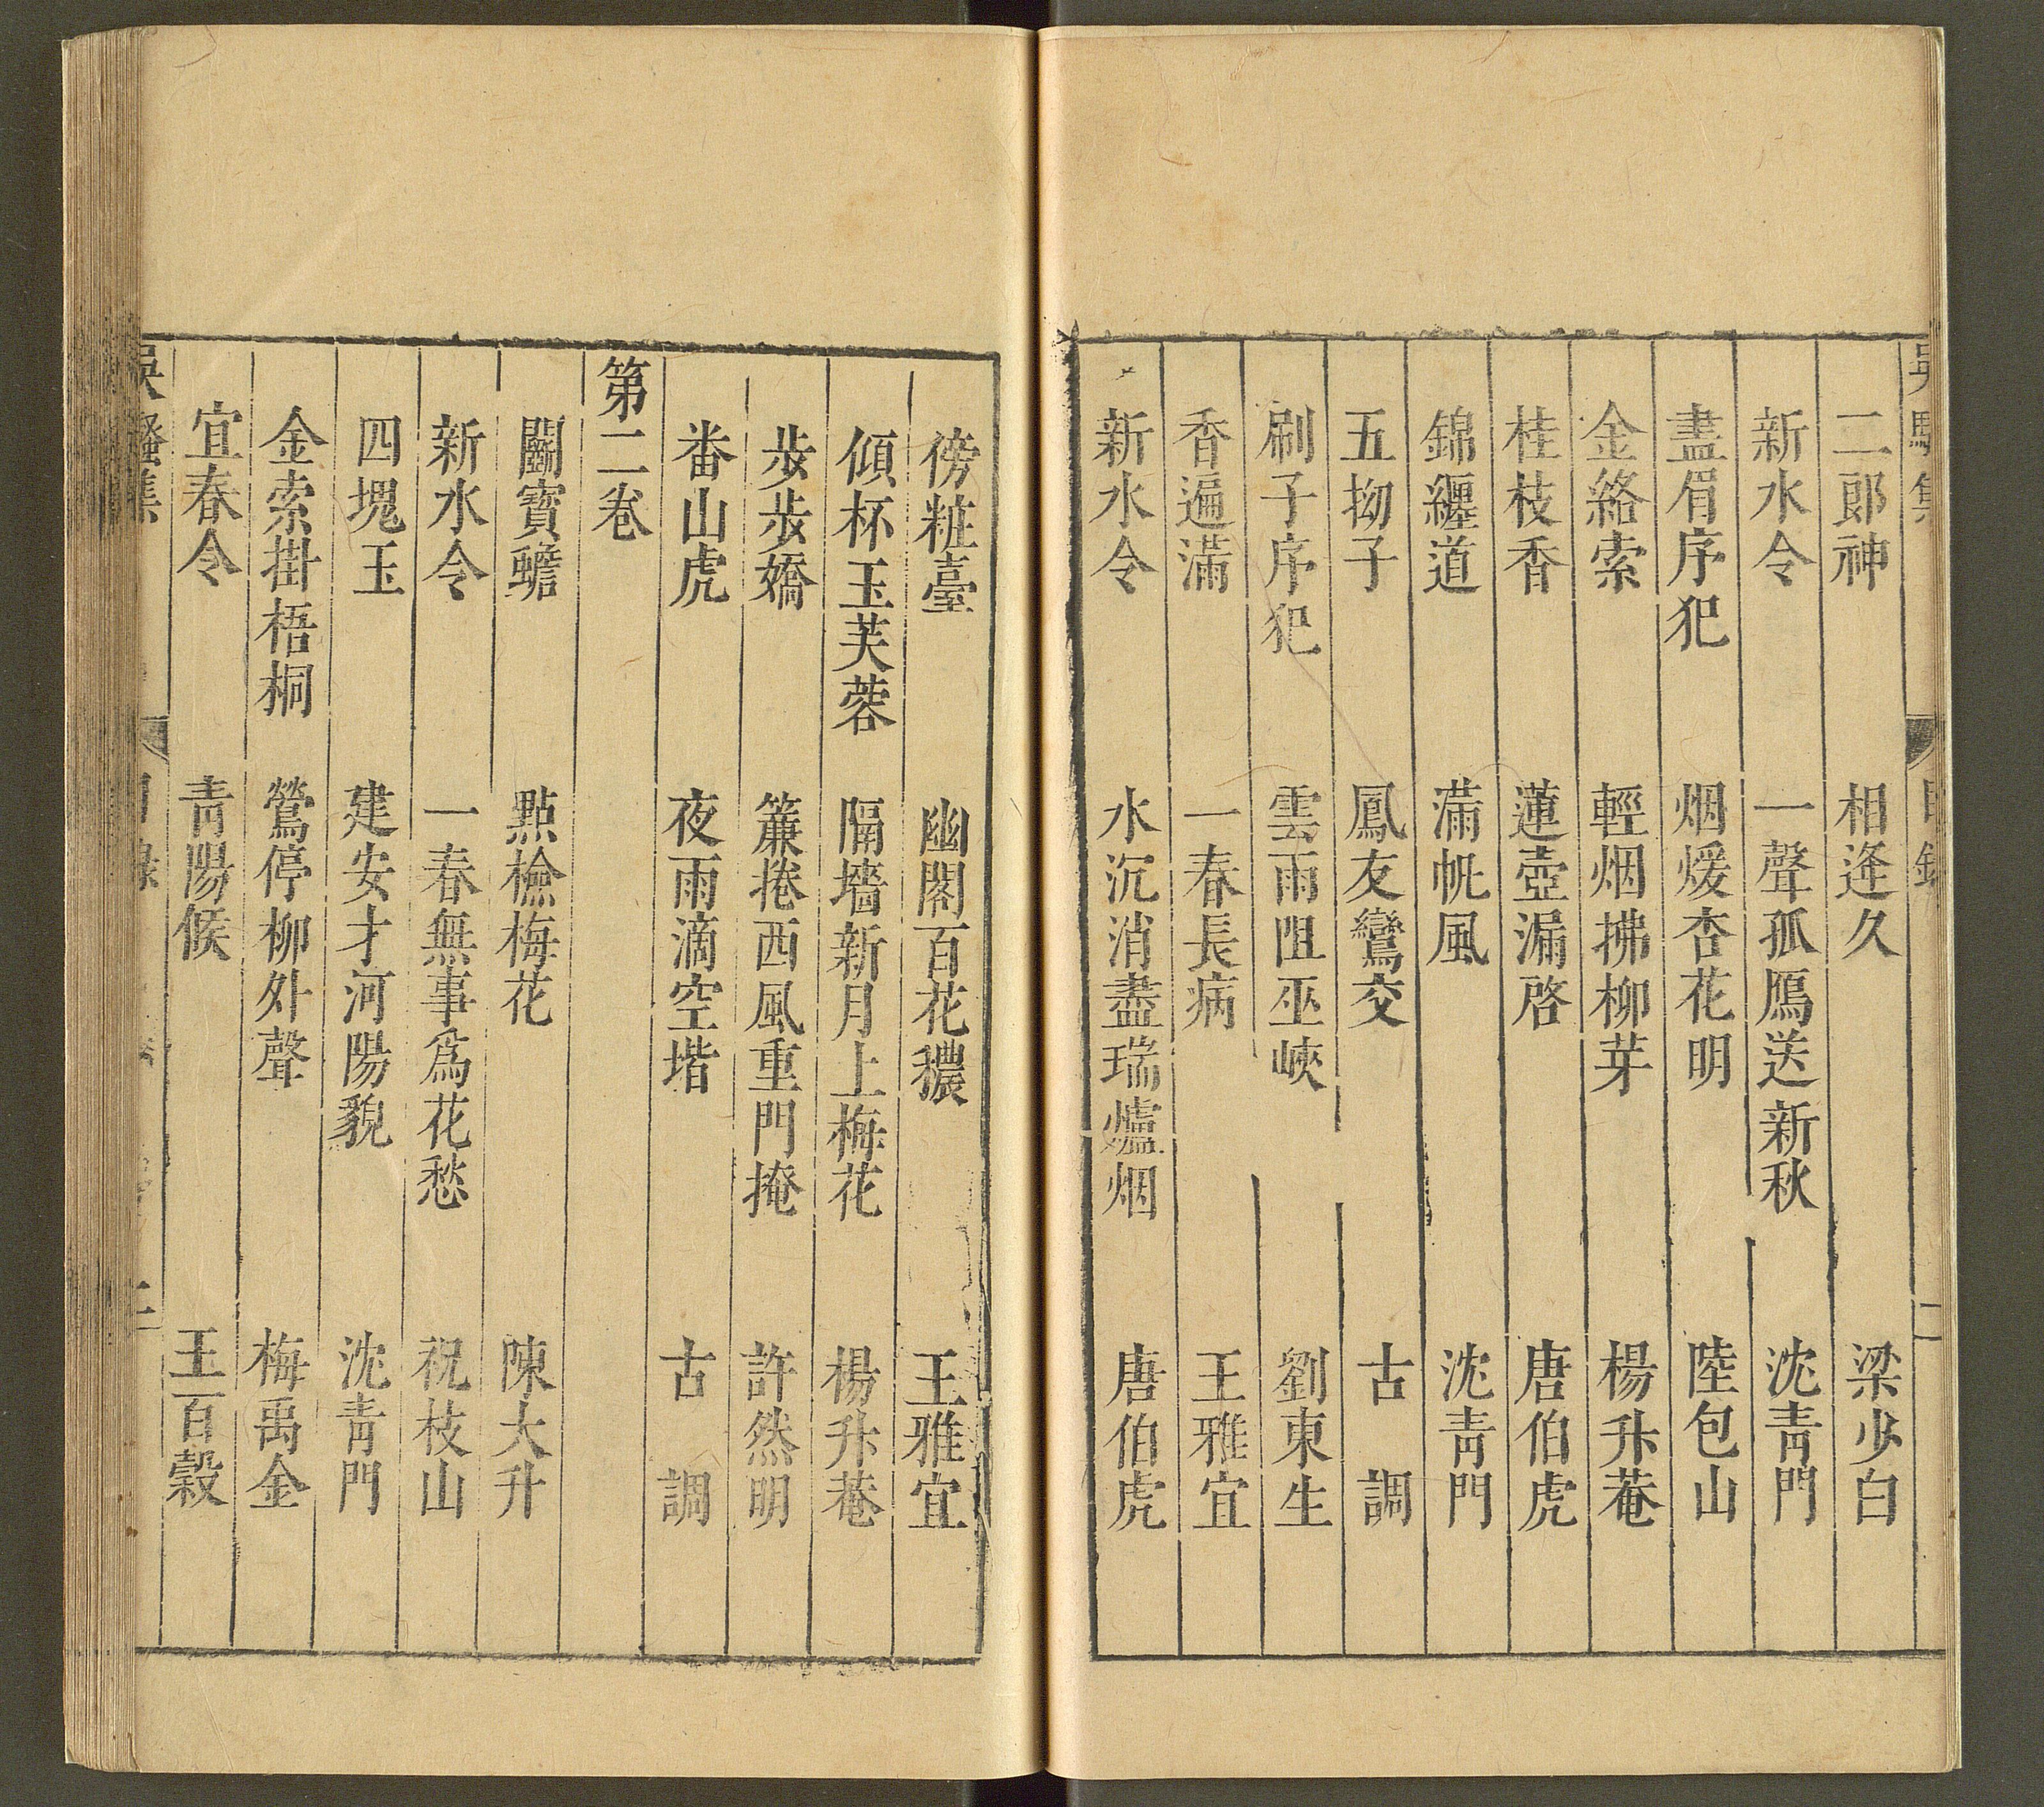 二郎神 相逢久 梁少白
新水令 一聲孤鴈送新秋 沈青門
畫眉序犯 烟煖杏花明 陸包山
金絡索 輕烟拂柳芽 楊升菴
桂枝香 蓮壺漏啓 唐伯虎
錦纏道 滿帆風 沈青門
五拗子 鳳友鸞交 古調
刷子序犯 雲雨阻巫峽 劉東生
香遍滿 一春長病 王雅宜
新水令 水沉消盡瑞爐烟 唐伯虎
傍粧臺 幽閣百花穠 王雅宜
傾杯玉芙蓉 隔墻新月上梅花 楊升菴
步步嬌 簾捲西風重門掩 許然明
番山虎 夜雨滴空堦 古調
第二卷
鬬寶蟾 點檢梅花 陳大升
新水令 一春無事爲花愁 祝枝山
四塊玉 建安才河陽貌 沈青門
金索掛梧桐 鶯停柳外聲 梅禹金
宜春令 青陽候 王百穀
吳騷集 目錄